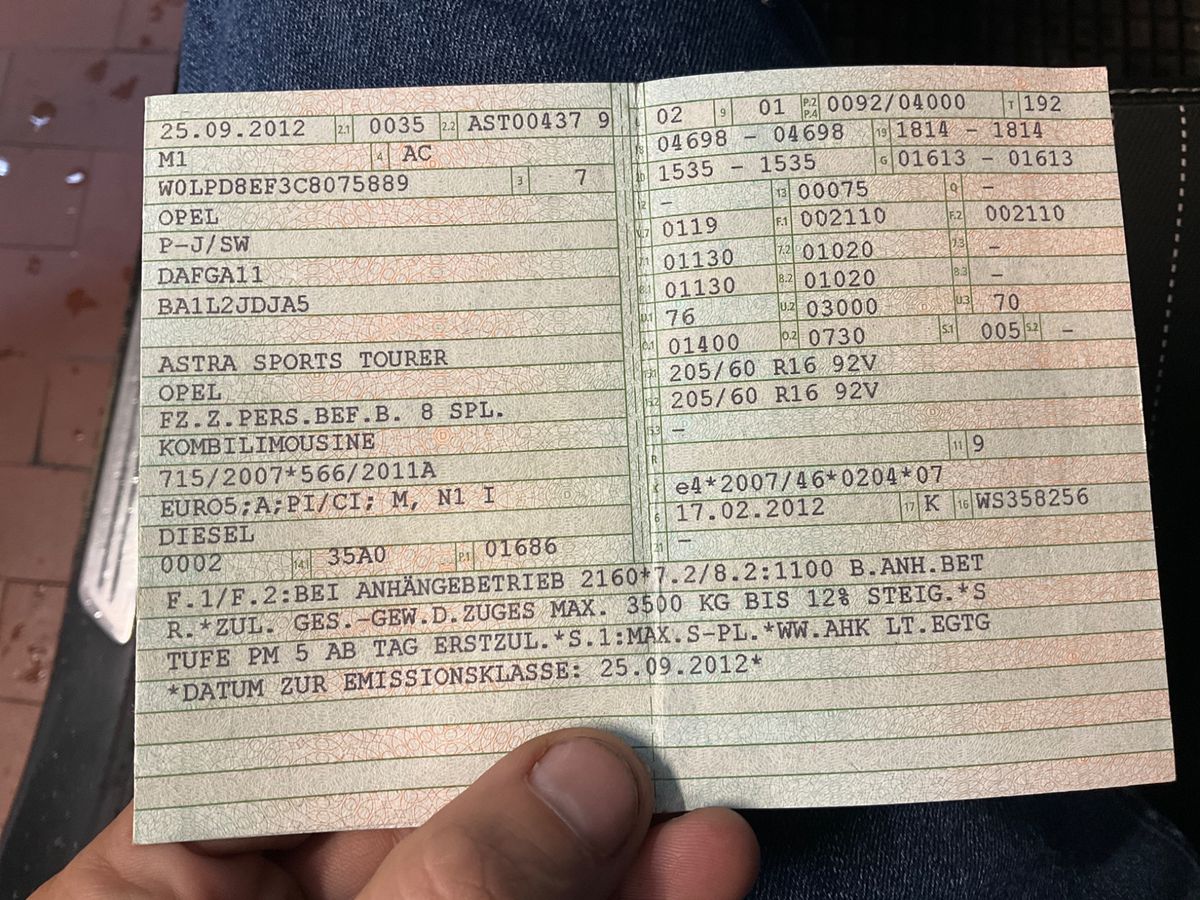 25.09.2012 2.1 0035 2.2 AST00437 9
M1 4 AC
W0LPD8EF3C8075889 3 7
OPEL
P-J/SW
DAFGA11
BA1L2JDJA5
ASTRA SPORTS TOURER
OPEL
FZ.Z.PERS.BEF.B. 8 SPL.
KOMBILIMOUSINE
715/2007*566/2011A
EURO5;A;PI/CI; M, N1 I
DIESEL
0002 14.1 35A0 P.1 01686
L 02 9 01 P.2 P.4 0092/04000 T 192
18 04698 - 04698 19 1814 - 1814
20 1535 - 1535 G 01613 - 01613
12 - 13 00075 Q -
V.7 0119 F.1 002110 F.2 002110
7.1 01130 7.2 01020 7.3 -
8.1 01130 8.2 01020 8.3 -
U.1 76 U.2 03000 U.3 70
O.1 01400 O.2 0730 S.1 005 S.2 -
15.1 205/60 R16 92V
15.2 205/60 R16 92V
15.3 -
R 11 9
K e4*2007/46*0204*07
6 17.02.2012 17 K 16 WS358256
21 -
F.1/F.2:BEI ANHÄNGEBETRIEB 2160*7.2/8.2:1100 B.ANH.BET
R.*ZUL. GES.-GEW.D.ZUGES MAX. 3500 KG BIS 12% STEIG.*S
TUFE PM 5 AB TAG ERSTZUL.*S.1:MAX.S-PL.*WW.AHK LT.EGTG
*DATUM ZUR EMISSIONSKLASSE: 25.09.2012*